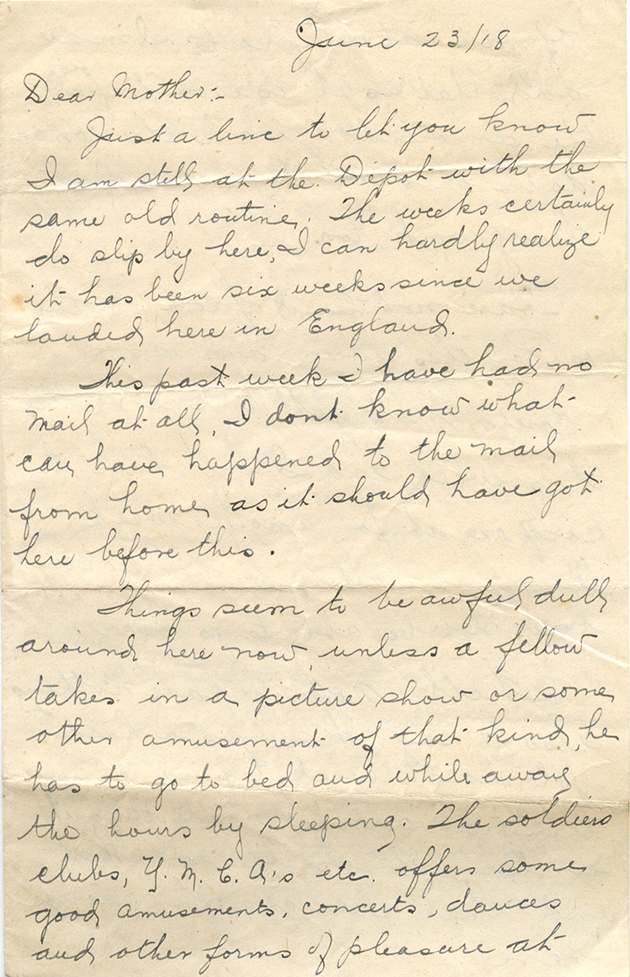 June 23/18
Dear Mother:-
Just a line to let you know
I am still at the Depot with the
same old routine. The weeks certainly
do slip by here, I can hardly realize
it has been six weeks since we
landed here in England.
This past week I have had no
mail at all, I dont know what
can have happened to the mail
from home as it should have got
here before this.
Things seem to be awful dull
around here now, unless a fellow
takes in a picture show or some
other amusement of that kind, he
has to go to bed and while away
the hours by sleeping. The soldiers
clubs, Y. M. C. A's etc. offers some
good amusements, concerts, dances
and other forms of pleasure at